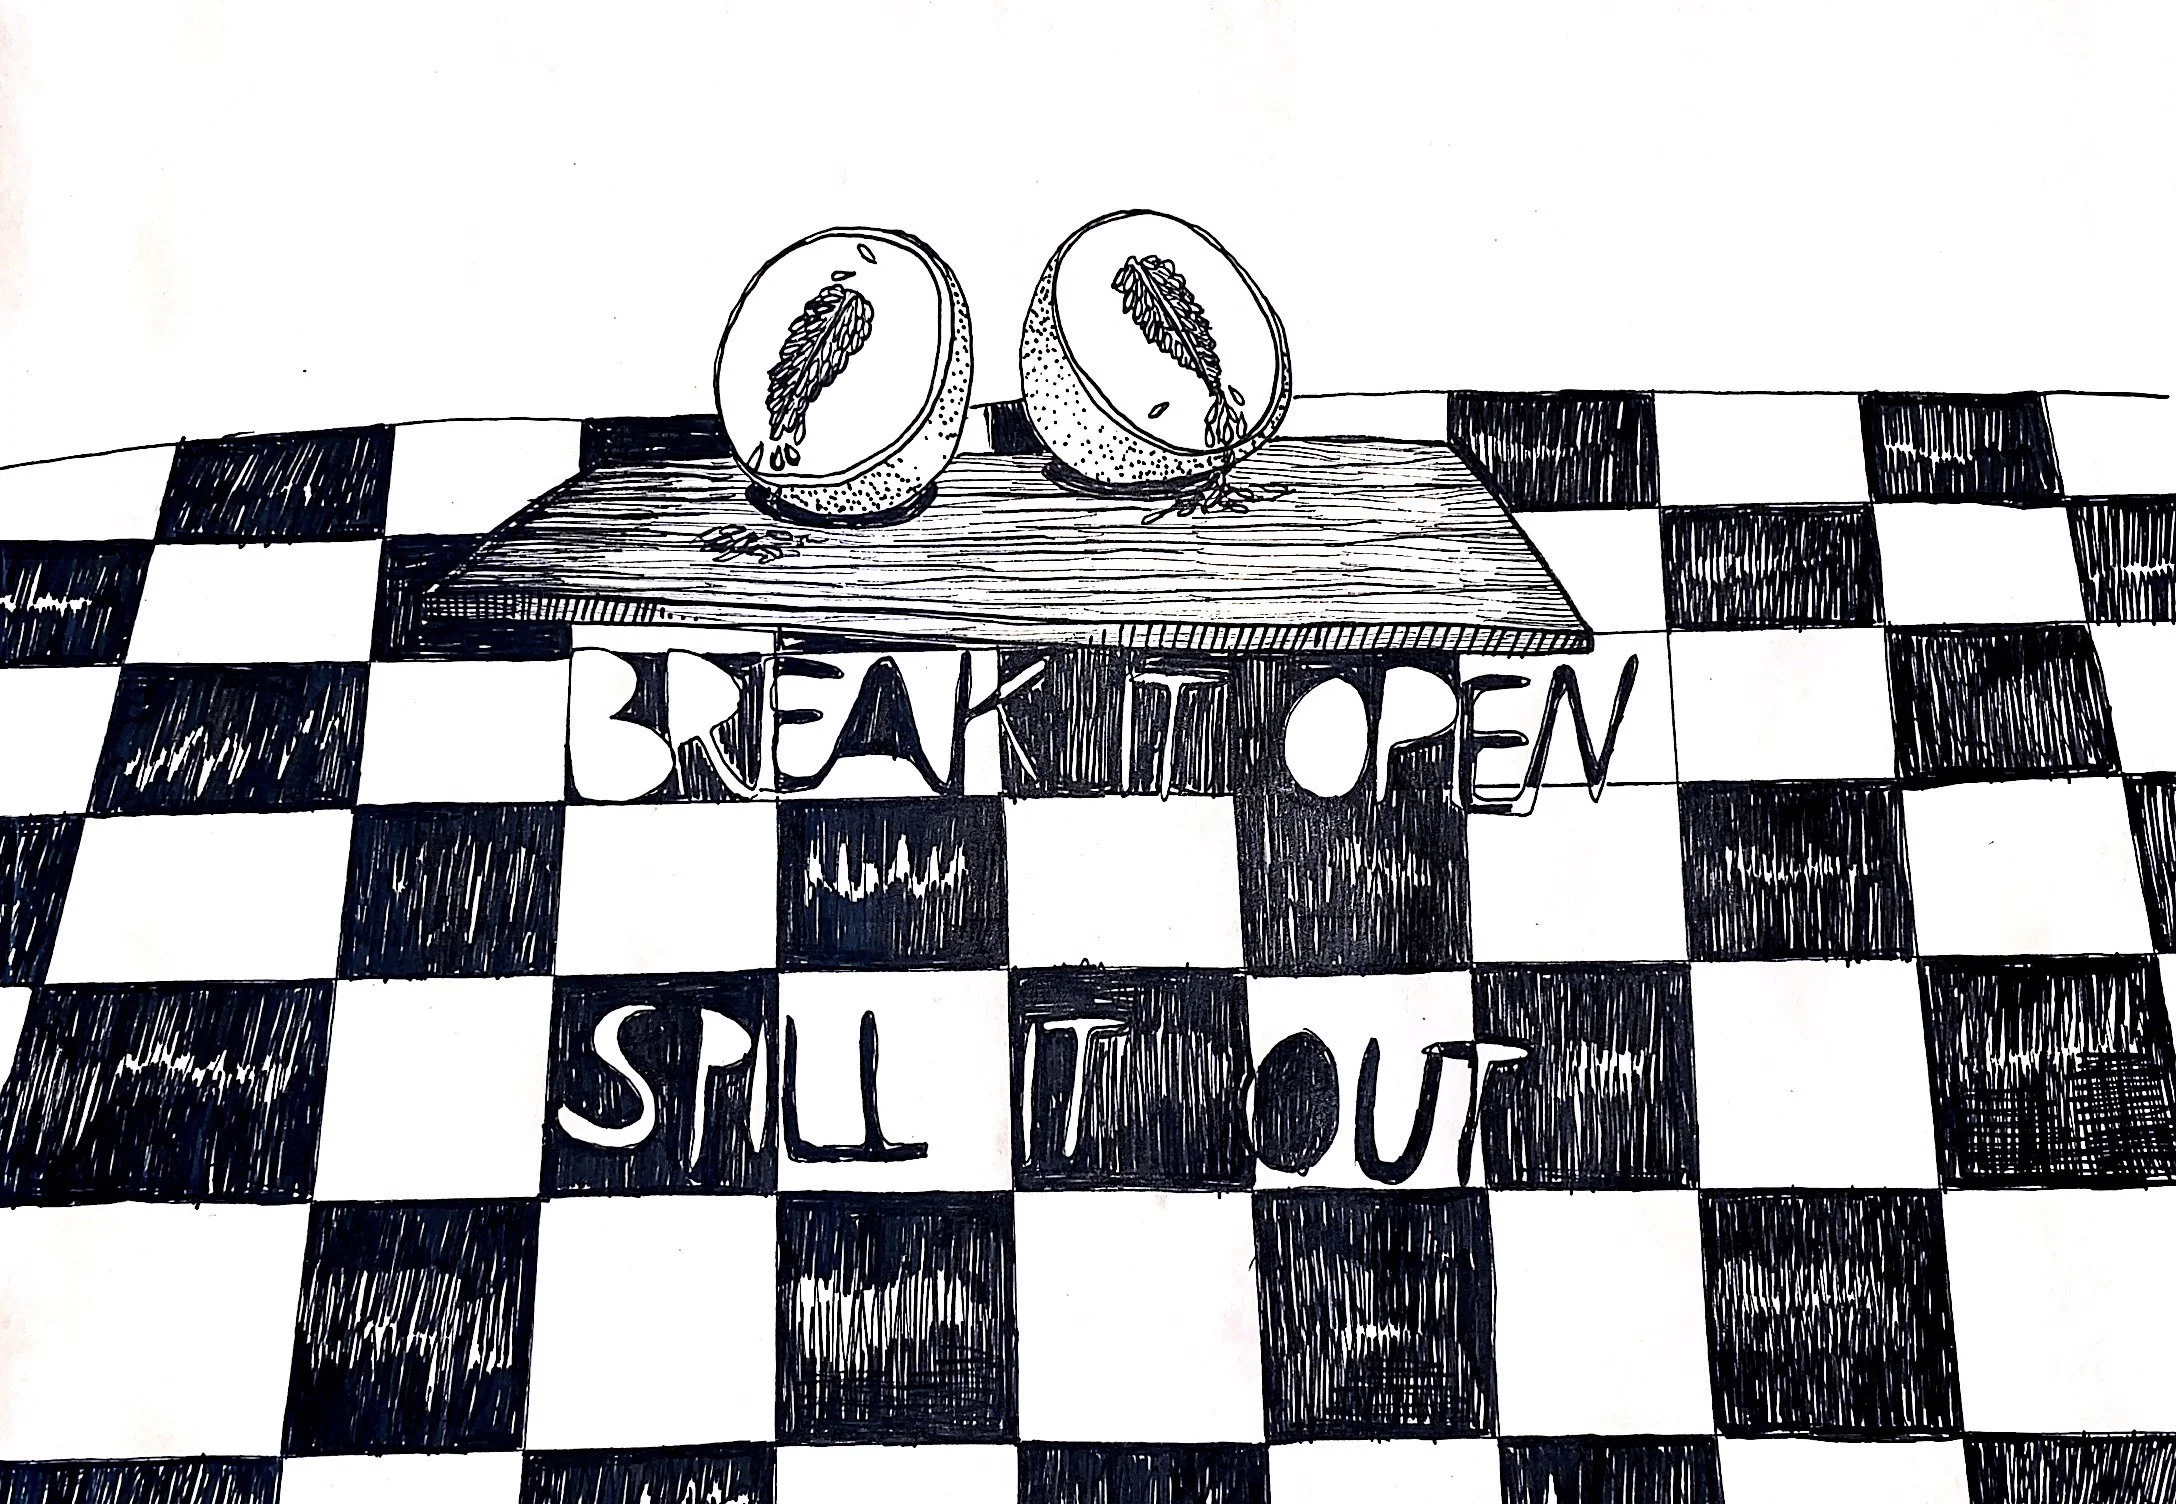 BREAK IT OPEN
SPILL IT OUT